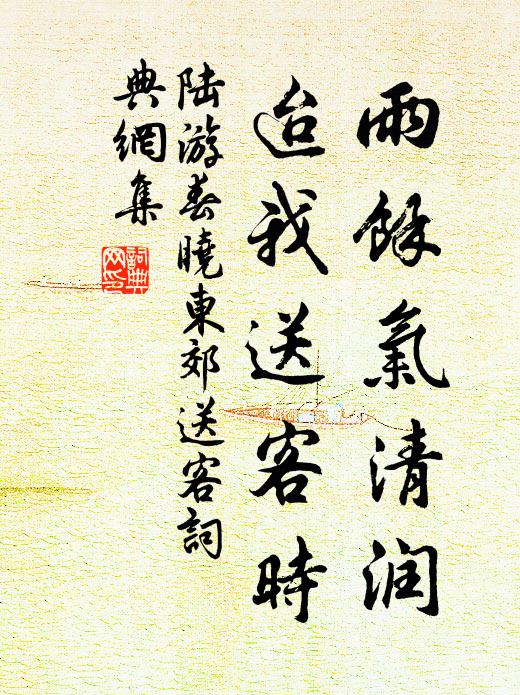 雨餘氣清潤
迨我送客時
陸游春曉東郊送客詞
典網集
詞典
网印